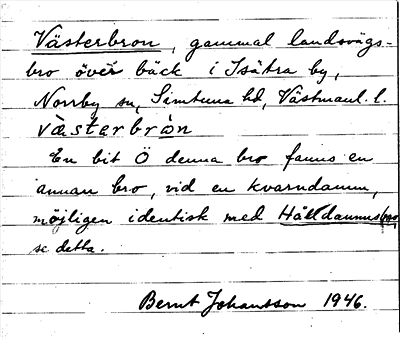 Västerbron, gammal landsvägs-
bro över bäck i Isätra by,
Norrby sn, Simtuna hd, Västmanl. l.
västerbròn
En bit Ö denna bro fanns en
annan bro, vid en kvarndamm,
möjligen identisk med Hålldammsbro,
se detta.
Bernt Johansson 1946.